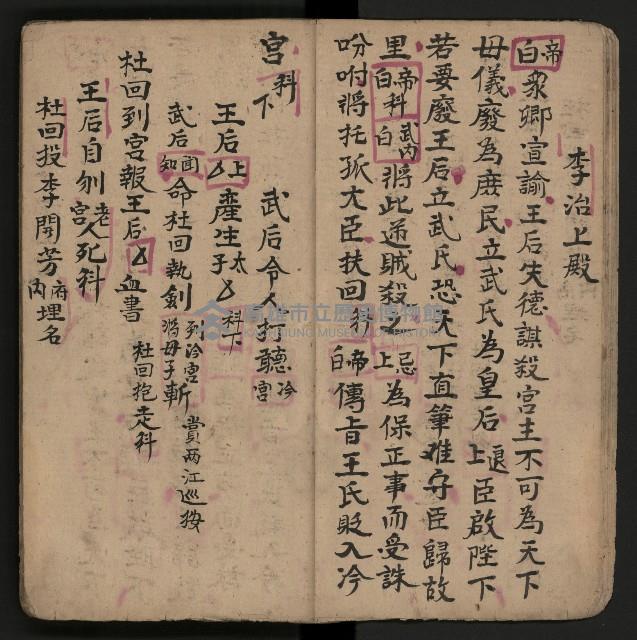 李治上殿
帝白眾卿宣諭王后失德謀殺宮主不可為天下
母儀廢為庶民立武氏為皇后 遂上臣啟陛下
若要廢王后立武氏恐天下直筆难守臣歸故
里 帝科白 武內白 將此逆賊殺 忌上 為保正事而受誅
吩咐將托孤大臣扶回 帝白 傳旨王氏貶入冷
宮 科下
武后令人打聽 冷宮
王后 上 產生 太子 科下
武后 聞知 命杜回執劍 到冷宮 將母子斬 賞兩江巡按
杜回到宮報王后 血書 杜回抱走科
王后自刎 老宮人死科
杜回投李開芳 府內 埋名
高雄市立歷史博物館
KAOHSIUNG MUSEUM OF HISTORY